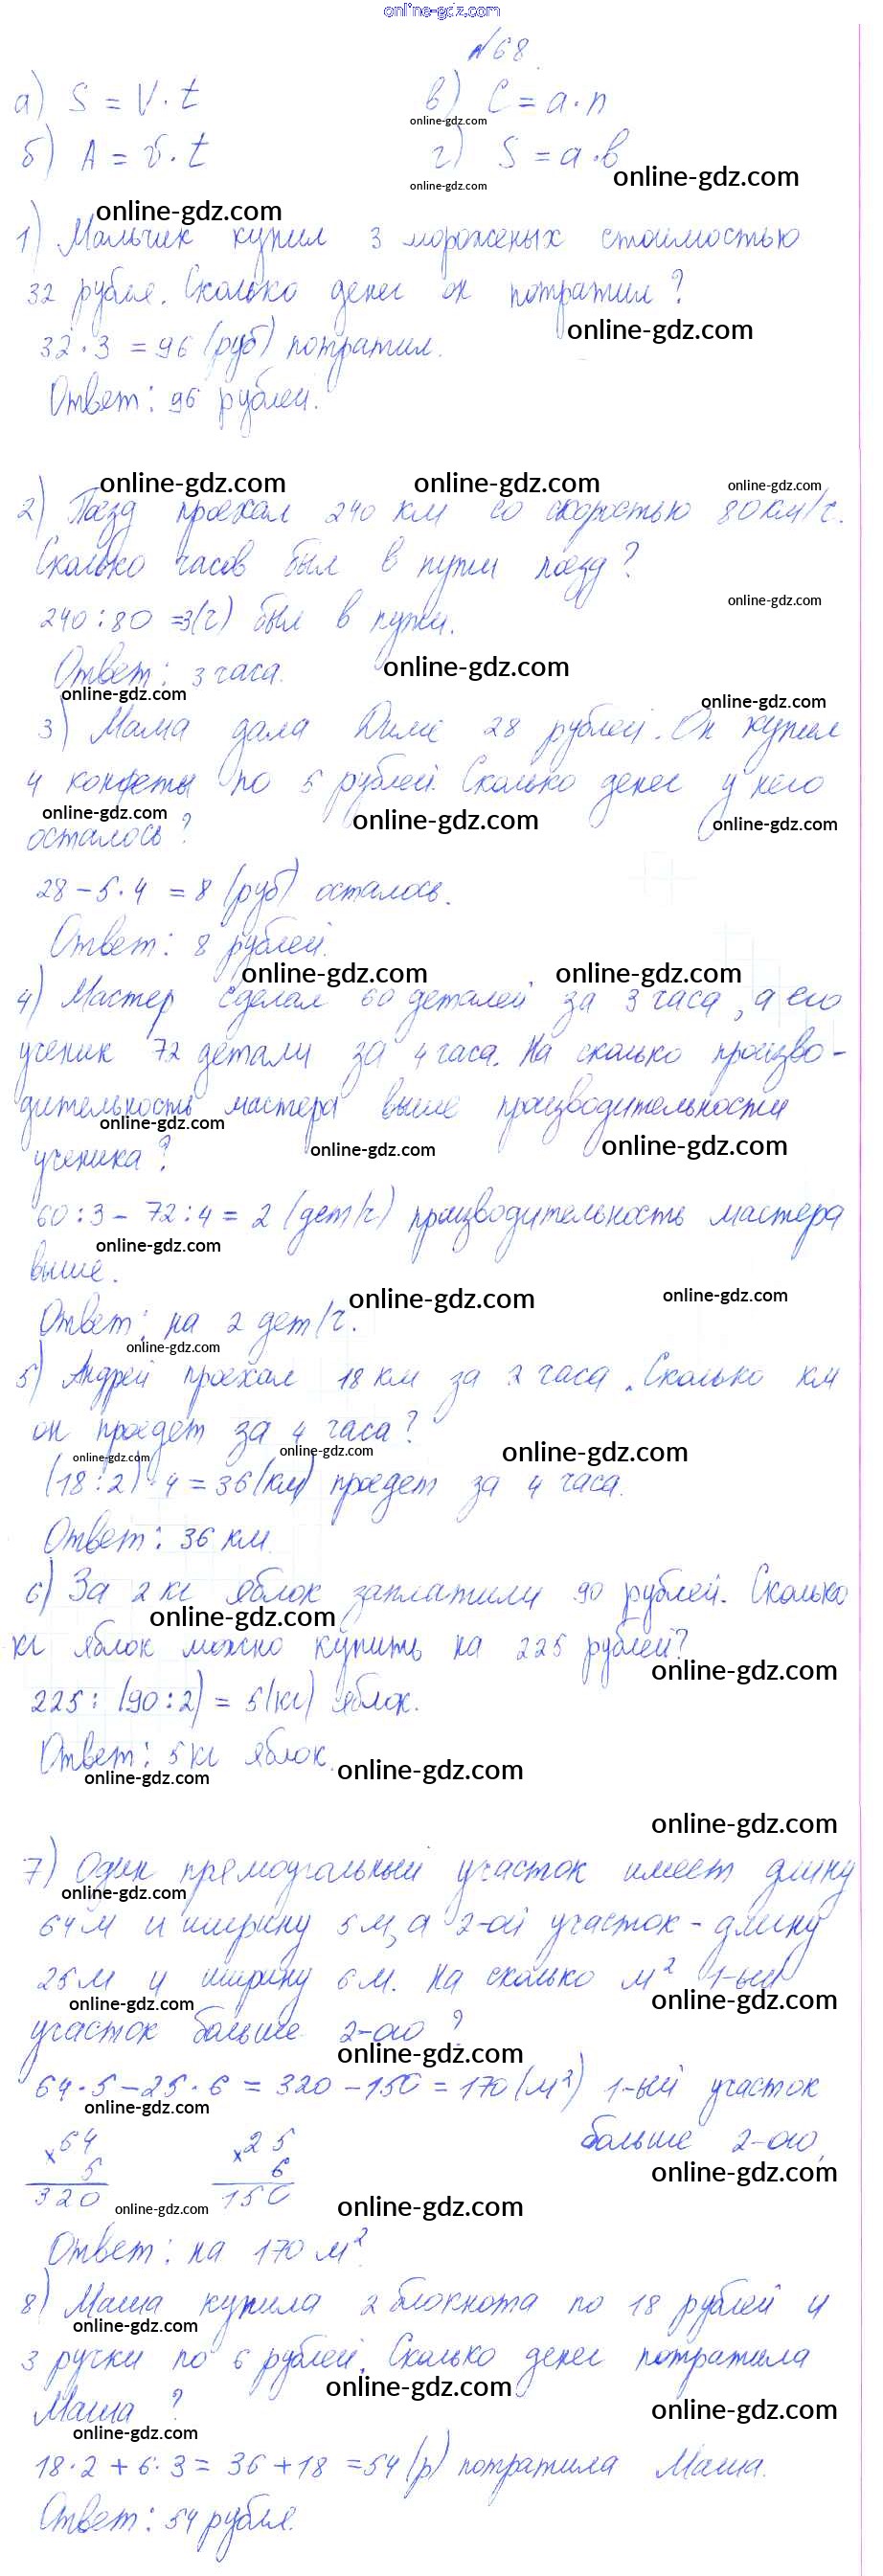 online-gdz.com
№68
а) S = V · t
в) C = a · n
online-gdz.com
б) A = v · t
г) S = a · в
online-gdz.com
online-gdz.com
online-gdz.com
1) Мальчик купил 3 мороженых стоимостью
32 рубля. Сколько денег он потратил?
online-gdz.com
32 · 3 = 96 (руб) потратил.
Ответ: 96 рублей.
online-gdz.com online-gdz.com online-gdz.com
2) Поезд проехал 240 км со скоростью 80 км/ч.
Сколько часов был в пути поезд?
online-gdz.com
240 : 80 = 3(ч) был в пути.
Ответ: 3 часа.
online-gdz.com
online-gdz.com
online-gdz.com
3) Мама дала Диме 28 рублей. Он купил
4 конфеты по 5 рублей. Сколько денег у него
online-gdz.com online-gdz.com online-gdz.com
осталось?
28 – 5 · 4 = 8 (руб) осталось.
Ответ: 8 рублей.
online-gdz.com online-gdz.com
4) Мастер сделал 60 деталей за 3 часа, а его
ученик 72 детали за 4 часа. На сколько произво-
дительность мастера выше производительности
online-gdz.com
online-gdz.com online-gdz.com
ученика?
60 : 3 – 72 : 4 = 2 (дет/ч) производительность мастера
online-gdz.com
выше.
online-gdz.com online-gdz.com
Ответ: на 2 дет/ч.
online-gdz.com
5) Андрей проехал 18 км за 2 часа. Сколько км
он проедет за 4 часа?
online-gdz.com online-gdz.com online-gdz.com
(18 : 2) · 4 = 36 (км) проедет за 4 часа.
Ответ: 36 км.
6) За 2 кг яблок заплатили 90 рублей. Сколько
online-gdz.com
кг яблок можно купить на 225 рублей?
online-gdz.com
225 : (90 : 2) = 5(кг) яблок.
Ответ: 5 кг яблок.
online-gdz.com online-gdz.com
online-gdz.com
7) Один прямоугольный участок имеет длину
online-gdz.com
64 м и ширину 5 м, а 2-ой участок – длину
25 м и ширину 6 м. На сколько м² 1-ый
online-gdz.com online-gdz.com
участок больше 2-ого?
online-gdz.com
64 · 5 – 25 · 6 = 320 – 150 = 170 (м²) 1-ый участок
online-gdz.com
больше 2-ого.
×64 ×25
5 6
online-gdz.com
320 150
online-gdz.com online-gdz.com
Ответ: на 170 м².
8) Маша купила 2 блокнота по 18 рублей и
online-gdz.com
3 ручки по 6 рублей. Сколько денег потратила
online-gdz.com
Маша?
online-gdz.com
online-gdz.com
18 · 2 + 6 · 3 = 36 + 18 = 54 (р) потратила Маша.
Ответ: 54 рубля.